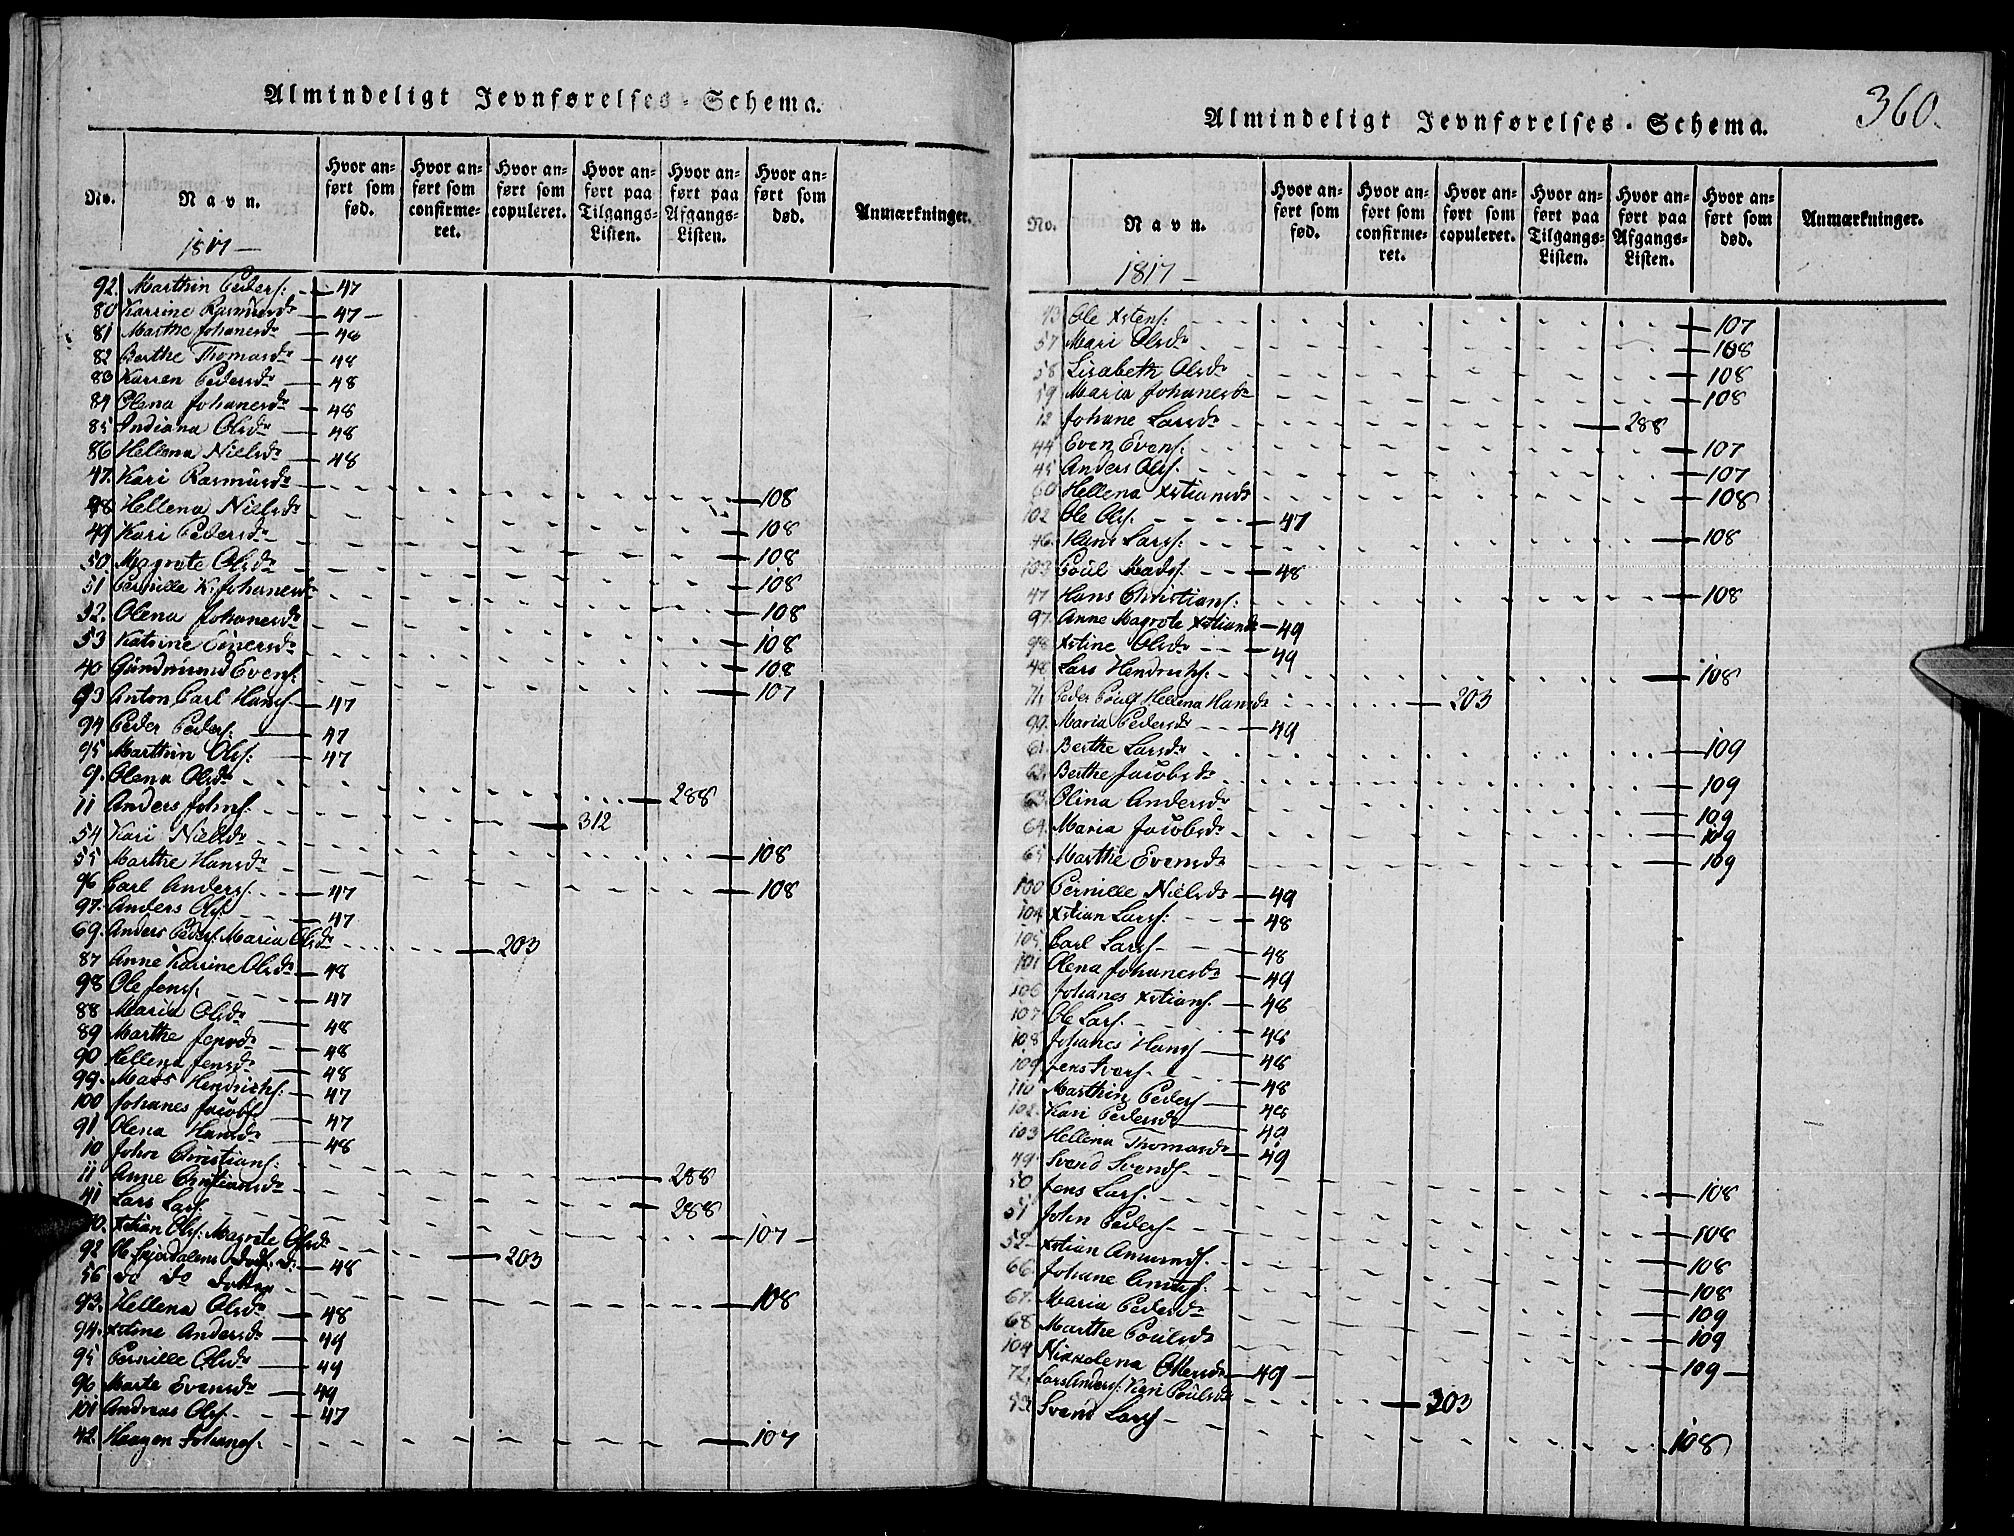 Almindeligt Jevnførelses-Schema.
No. Navn. Hvor anført som fød. Hvor anført som confirmeret. Hvor anført som copuleret. Hvor anført paa Tilgangs-Listen. Hvor anført paa Afgangs-Listen. Hvor anført som død. Anmærkninger.
1817 —
92. Marthin Peders: 47
80 Karrine Rasmusdr 47 —
81 Marthe Johanesdr 48
82 Berthe Thomasdr 48
83 Karren Pedersdr 48
84 Olena Johanesdr 48
85 Indiana Olsdr 48
86 Hellena Nielsdr 48
47. Kari Rasmusdr 108
48 Hellena Nielsdr 108
49 Kari Pedersdr 108
50. Magrete Olsdr 108
51 Pernille K. Johanesdr 108
52. Olena Johanesdr 108
53 Katrine Einersdr 108
40 Gundmund Evens: 107
93 Anton Carl Hans 47
94 Peder Peders: 47
95 Marthin Ols: 47
9. Olena Olsdr 288
11 Anders Johns. 312
54 Kari Nielsdr 108
55 Marthe Hansdr 108
96 Carl Anders: 47
97. Anders Ols. 47
69. Anders Peders: Maria Olsdr 203
87 Anne Karrine Olsdr 48
98 Ole Jens. 47
88 Maria Olsdr 48
89 Marthe Jensdr 48
90 Hellena Jensdr 48
99. Mass Hendrichs: 47
100 Johanes Jacobs 47
91 Olena Hansdr 48
10 John Christians: 288
11 Anne Christiansdr 288
41 Lars Lars. 107 —
70. Xstian Ols: Magrete Olsdr 203
92 Ole 48
56 do do 108
93. Hellena Olsdr 48
94. Xstine Andersdr 49
95 Pernille Olsdr 49
96 Marte Evensdr 49
101 Andreas Ols. 47
42. Haagen Johans. 107
360.
Almindeligt Jevnførelses-Schema.
No. Navn. Hvor anført som fød. Hvor anført som confirmeret. Hvor anført som copuleret. Hvor anført paa Tilgangs-Listen. Hvor anført paa Afgangs-Listen. Hvor anført som død. Anmærkninger.
1817 —
43 Ole Xstens: 107
57 Mari Olsdr 108
58 Lisabeth Olsdr 108
59 Maria Johanesdr 108
12 Johane Larsdr 288
44 Even Evens: 107
45 Anders Ols. 107
60 Hellena Xstiansdr 108
102 Ole Ols. 47
46. Hans Lars: 108
103 Poul Mads. 48
47 Hans Christians: 108
97. Anne Magrete Xstiansdr 49
98 Xstine Olsdr 49
48 Lars Hendrichs. 108
71. Peder Pouls Hellena Hansdr 203
99. Maria Pedersdr 49
61. Berthe Larsdr 109
62. Berthe Jacobsdr 109
63. Olina Andersdr 109
64. Maria Jacobsdr 109
65 Marthe Evensdr 109
100 Pernille Nielsdr 49
104 Xstian Lars: 48
105. Carl Lars 48
101 Olena Johanesdr 49
106 Johanes Xstians. 48
107 Ole Lars. 48
108 Johanes Hans 48
109 Jens Ivers 48
110 Marthin Peders 48
102. Kari Pedersdr 49
103 Hellena Thomasdr 49
49. Svend Svends. 108
50 Jens Lars. 108
51 John Peders 108
52 Xstian Amunds. 108
66. Johane 109
67. Maria Pedersdr 109
68 Marthe Poulsdr 109 —
104 Nikkolena Ottersdr 49 —
72. Lars Anders: Kari Poulsdr 203
53. Svend Lars 108